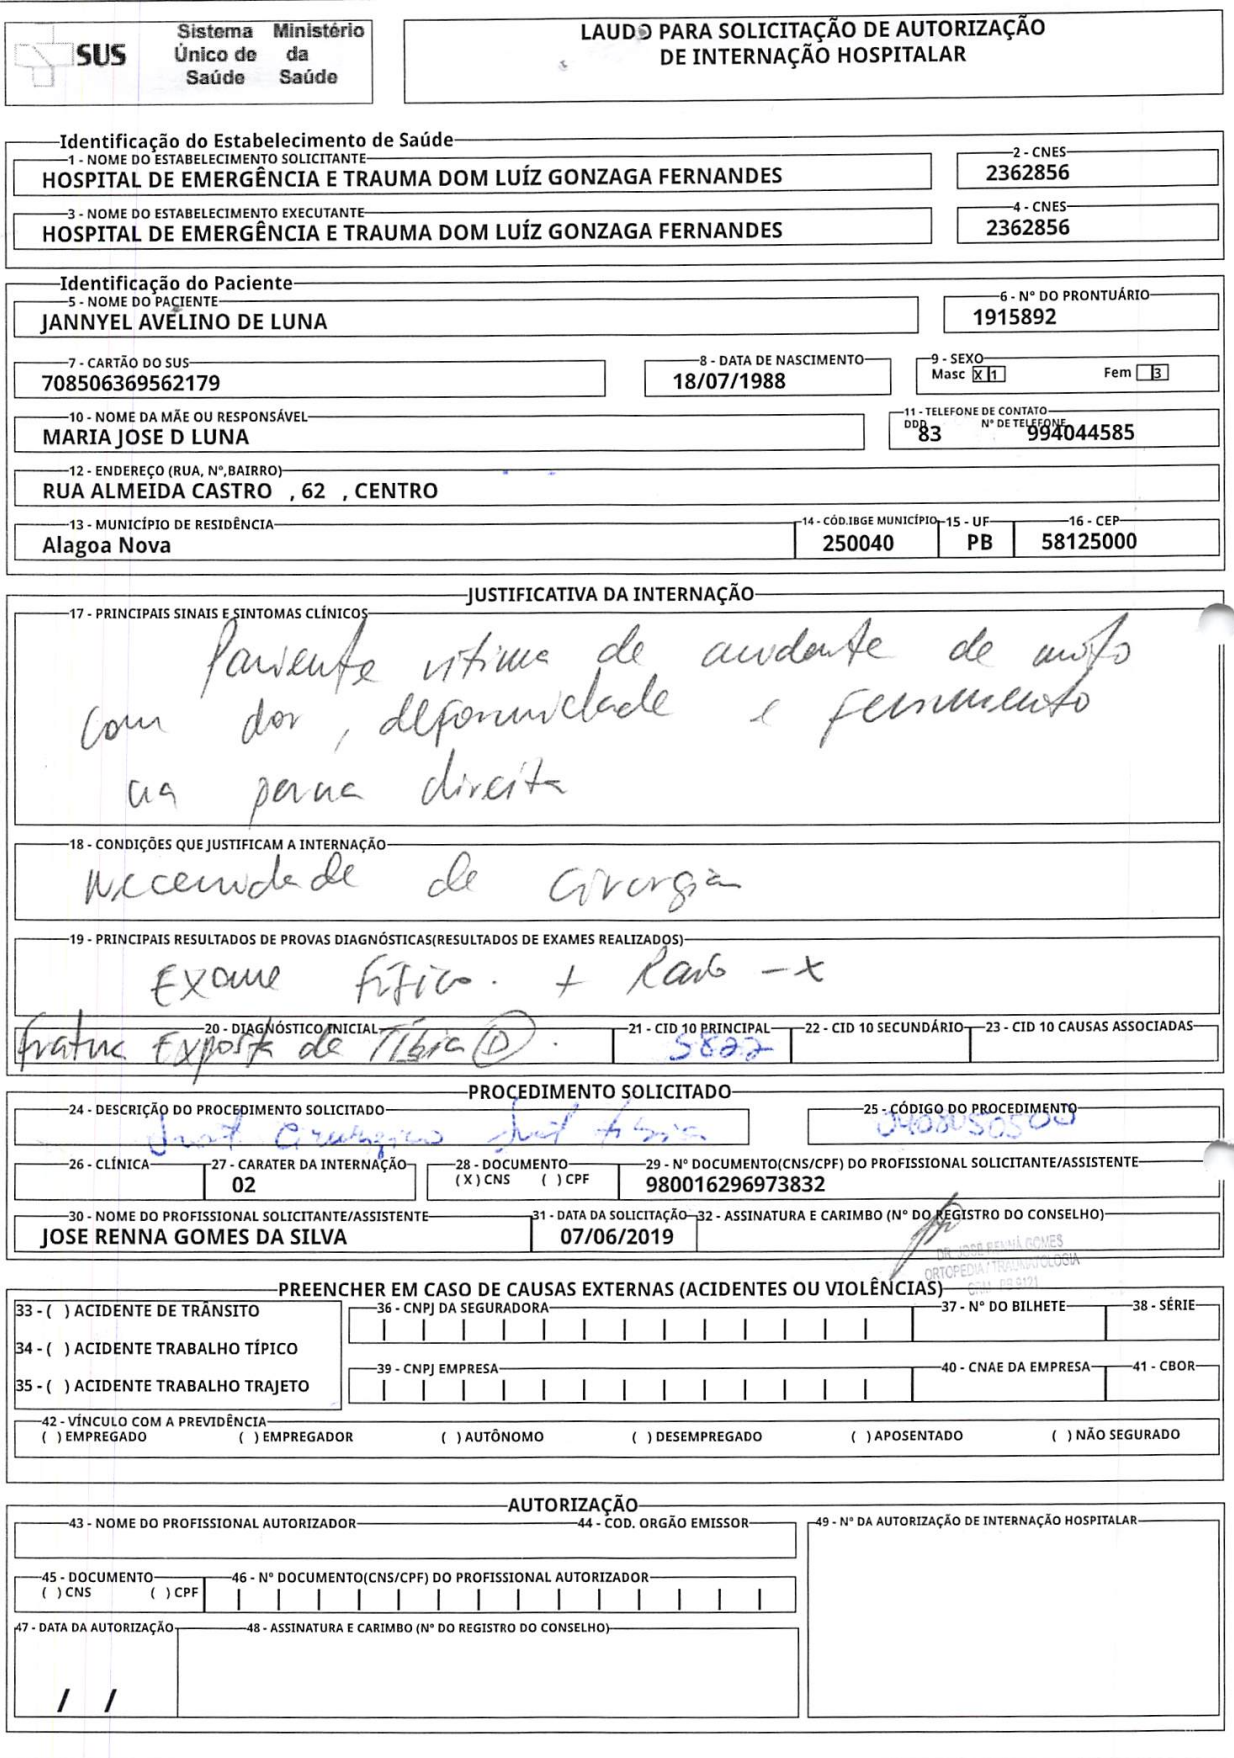 SUS
Sistema Único de Saúde
Ministério da Saúde
LAUDO PARA SOLICITAÇÃO DE AUTORIZAÇÃO
DE INTERNAÇÃO HOSPITALAR
Identificação do Estabelecimento de Saúde
1 - NOME DO ESTABELECIMENTO SOLICITANTE
2 - CNES
HOSPITAL DE EMERGÊNCIA E TRAUMA DOM LUÍZ GONZAGA FERNANDES
2362856
3 - NOME DO ESTABELECIMENTO EXECUTANTE
4 - CNES
HOSPITAL DE EMERGÊNCIA E TRAUMA DOM LUÍZ GONZAGA FERNANDES
2362856
Identificação do Paciente
5 - NOME DO PACIENTE
6 - Nº DO PRONTUÁRIO
JANNYEL AVELINO DE LUNA
1915892
7 - CARTÃO DO SUS
8 - DATA DE NASCIMENTO
9 - SEXO
708506369562179
18/07/1988
Masc X 1 Fem 3
10 - NOME DA MÃE OU RESPONSÁVEL
11 - TELEFONE DE CONTATO
DDD Nº DE TELEFONE
MARIA JOSE D LUNA
83 994044585
12 - ENDEREÇO (RUA, Nº,BAIRRO)
RUA ALMEIDA CASTRO , 62 , CENTRO
13 - MUNICÍPIO DE RESIDÊNCIA
14 - CÓD.IBGE MUNICÍPIO
15 - UF
16 - CEP
Alagoa Nova
250040
PB
58125000
JUSTIFICATIVA DA INTERNAÇÃO
17 - PRINCIPAIS SINAIS E SINTOMAS CLÍNICOS
Paciente vitima de acidente de moto
com dor, deformidade e ferimento
na perna direita
18 - CONDIÇÕES QUE JUSTIFICAM A INTERNAÇÃO
Necessidade de cirurgia
19 - PRINCIPAIS RESULTADOS DE PROVAS DIAGNÓSTICAS(RESULTADOS DE EXAMES REALIZADOS)
Exame físico. + Raio-x
20 - DIAGNÓSTICO INICIAL
21 - CID 10 PRINCIPAL
22 - CID 10 SECUNDÁRIO
23 - CID 10 CAUSAS ASSOCIADAS
Fratura Exposta de Tíbia D.
S822
PROCEDIMENTO SOLICITADO
24 - DESCRIÇÃO DO PROCEDIMENTO SOLICITADO
25 - CÓDIGO DO PROCEDIMENTO
Cirurgico tibia
0408050500
26 - CLÍNICA
27 - CARATER DA INTERNAÇÃO
28 - DOCUMENTO
29 - Nº DOCUMENTO(CNS/CPF) DO PROFISSIONAL SOLICITANTE/ASSISTENTE
02
(X) CNS ( ) CPF
980016296973832
30 - NOME DO PROFISSIONAL SOLICITANTE/ASSISTENTE
31 - DATA DA SOLICITAÇÃO
32 - ASSINATURA E CARIMBO (Nº DO REGISTRO DO CONSELHO)
JOSE RENNA GOMES DA SILVA
07/06/2019
DR. JOSE RENNÁ GOMES
ORTOPEDIA / TRAUMATOLOGIA
CRM - PB 9121
PREENCHER EM CASO DE CAUSAS EXTERNAS (ACIDENTES OU VIOLÊNCIAS)
33 - ( ) ACIDENTE DE TRÂNSITO
36 - CNPJ DA SEGURADORA
37 - Nº DO BILHETE
38 - SÉRIE
34 - ( ) ACIDENTE TRABALHO TÍPICO
35 - ( ) ACIDENTE TRABALHO TRAJETO
39 - CNPJ EMPRESA
40 - CNAE DA EMPRESA
41 - CBOR
42 - VÍNCULO COM A PREVIDÊNCIA
( ) EMPREGADO ( ) EMPREGADOR ( ) AUTÔNOMO ( ) DESEMPREGADO ( ) APOSENTADO ( ) NÃO SEGURADO
AUTORIZAÇÃO
43 - NOME DO PROFISSIONAL AUTORIZADOR
44 - COD. ORGÃO EMISSOR
49 - Nº DA AUTORIZAÇÃO DE INTERNAÇÃO HOSPITALAR
45 - DOCUMENTO
46 - Nº DOCUMENTO(CNS/CPF) DO PROFISSIONAL AUTORIZADOR
( ) CNS ( ) CPF
47 - DATA DA AUTORIZAÇÃO
48 - ASSINATURA E CARIMBO (Nº DO REGISTRO DO CONSELHO)
/ /